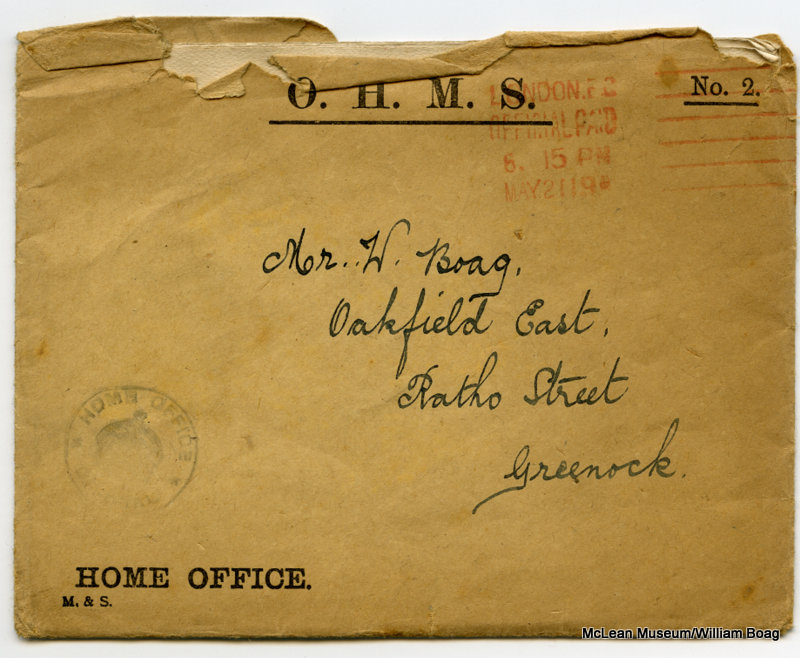 O. H. M. S.
No. 2.
LONDON. E C
OFFICIAL PAID
6. 15 PM
MAY 21 19
Mr. W. Boag,
Oakfield East,
Ratho Street
Greenock.
HOME OFFICE
HOME OFFICE.
M. & S.
McLean Museum/William Boag